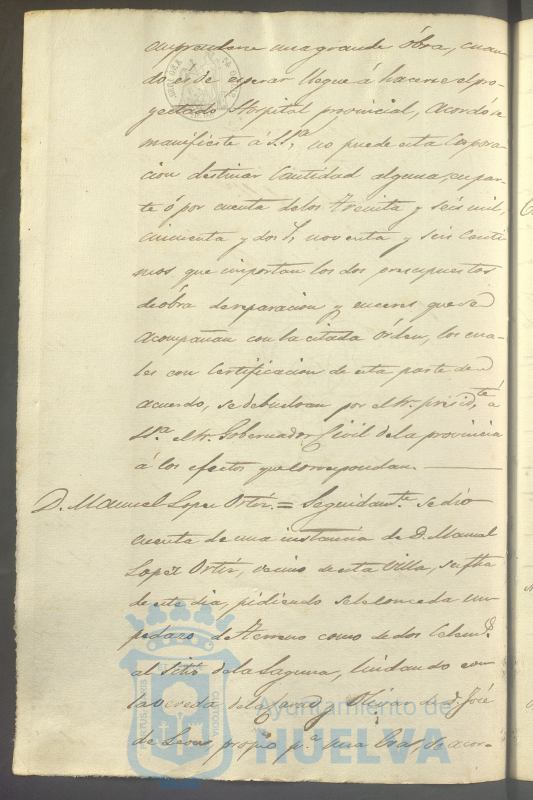 emprenderse una grande óbra, cuan-
do es de esperar llegue á hacerse el pro-
yectado Hospital provincial, acordó se
manifieste á S.Sª, no puede esta Corpora-
cion destinar Cantidad alguna, en par-
te ó por cuenta de los treinta y seis mil,
cincuenta y dos rˢ, noventa y seis Centi
mos que importan los dos presupuestos
de óbra de reparacion y enceres que se
acompañan con la citada órden, los cua-
les con Certificacion de esta parte de
acuerdo, se debuelvan por el Sr. presidᵗᵉ á
S.Sª el Sr. Gobernador Civil de la provincia
á los efectos que correspondan.
D. Manuel Lopez Ortíz. = Seguidamᵗᵉ se dió
cuenta de una instancia de D. Manuel
Lopez Ortíz, vecino de esta Villa, su fha
de este dia, pidiendo se le conceda un
pedazo de terreno como de dos Celemˢ
al Sitio de la Laguna, lindando con
la Vereda de la y Olivar de D. José
de Leon, propio pª una Casa, de acor-
Ayuntamiento de
HUELVA